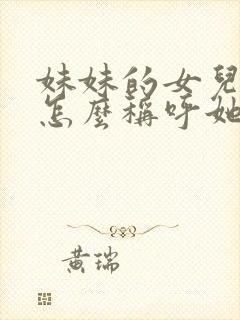 妹妹的女兒
怎麼稱呼她
黃瑞